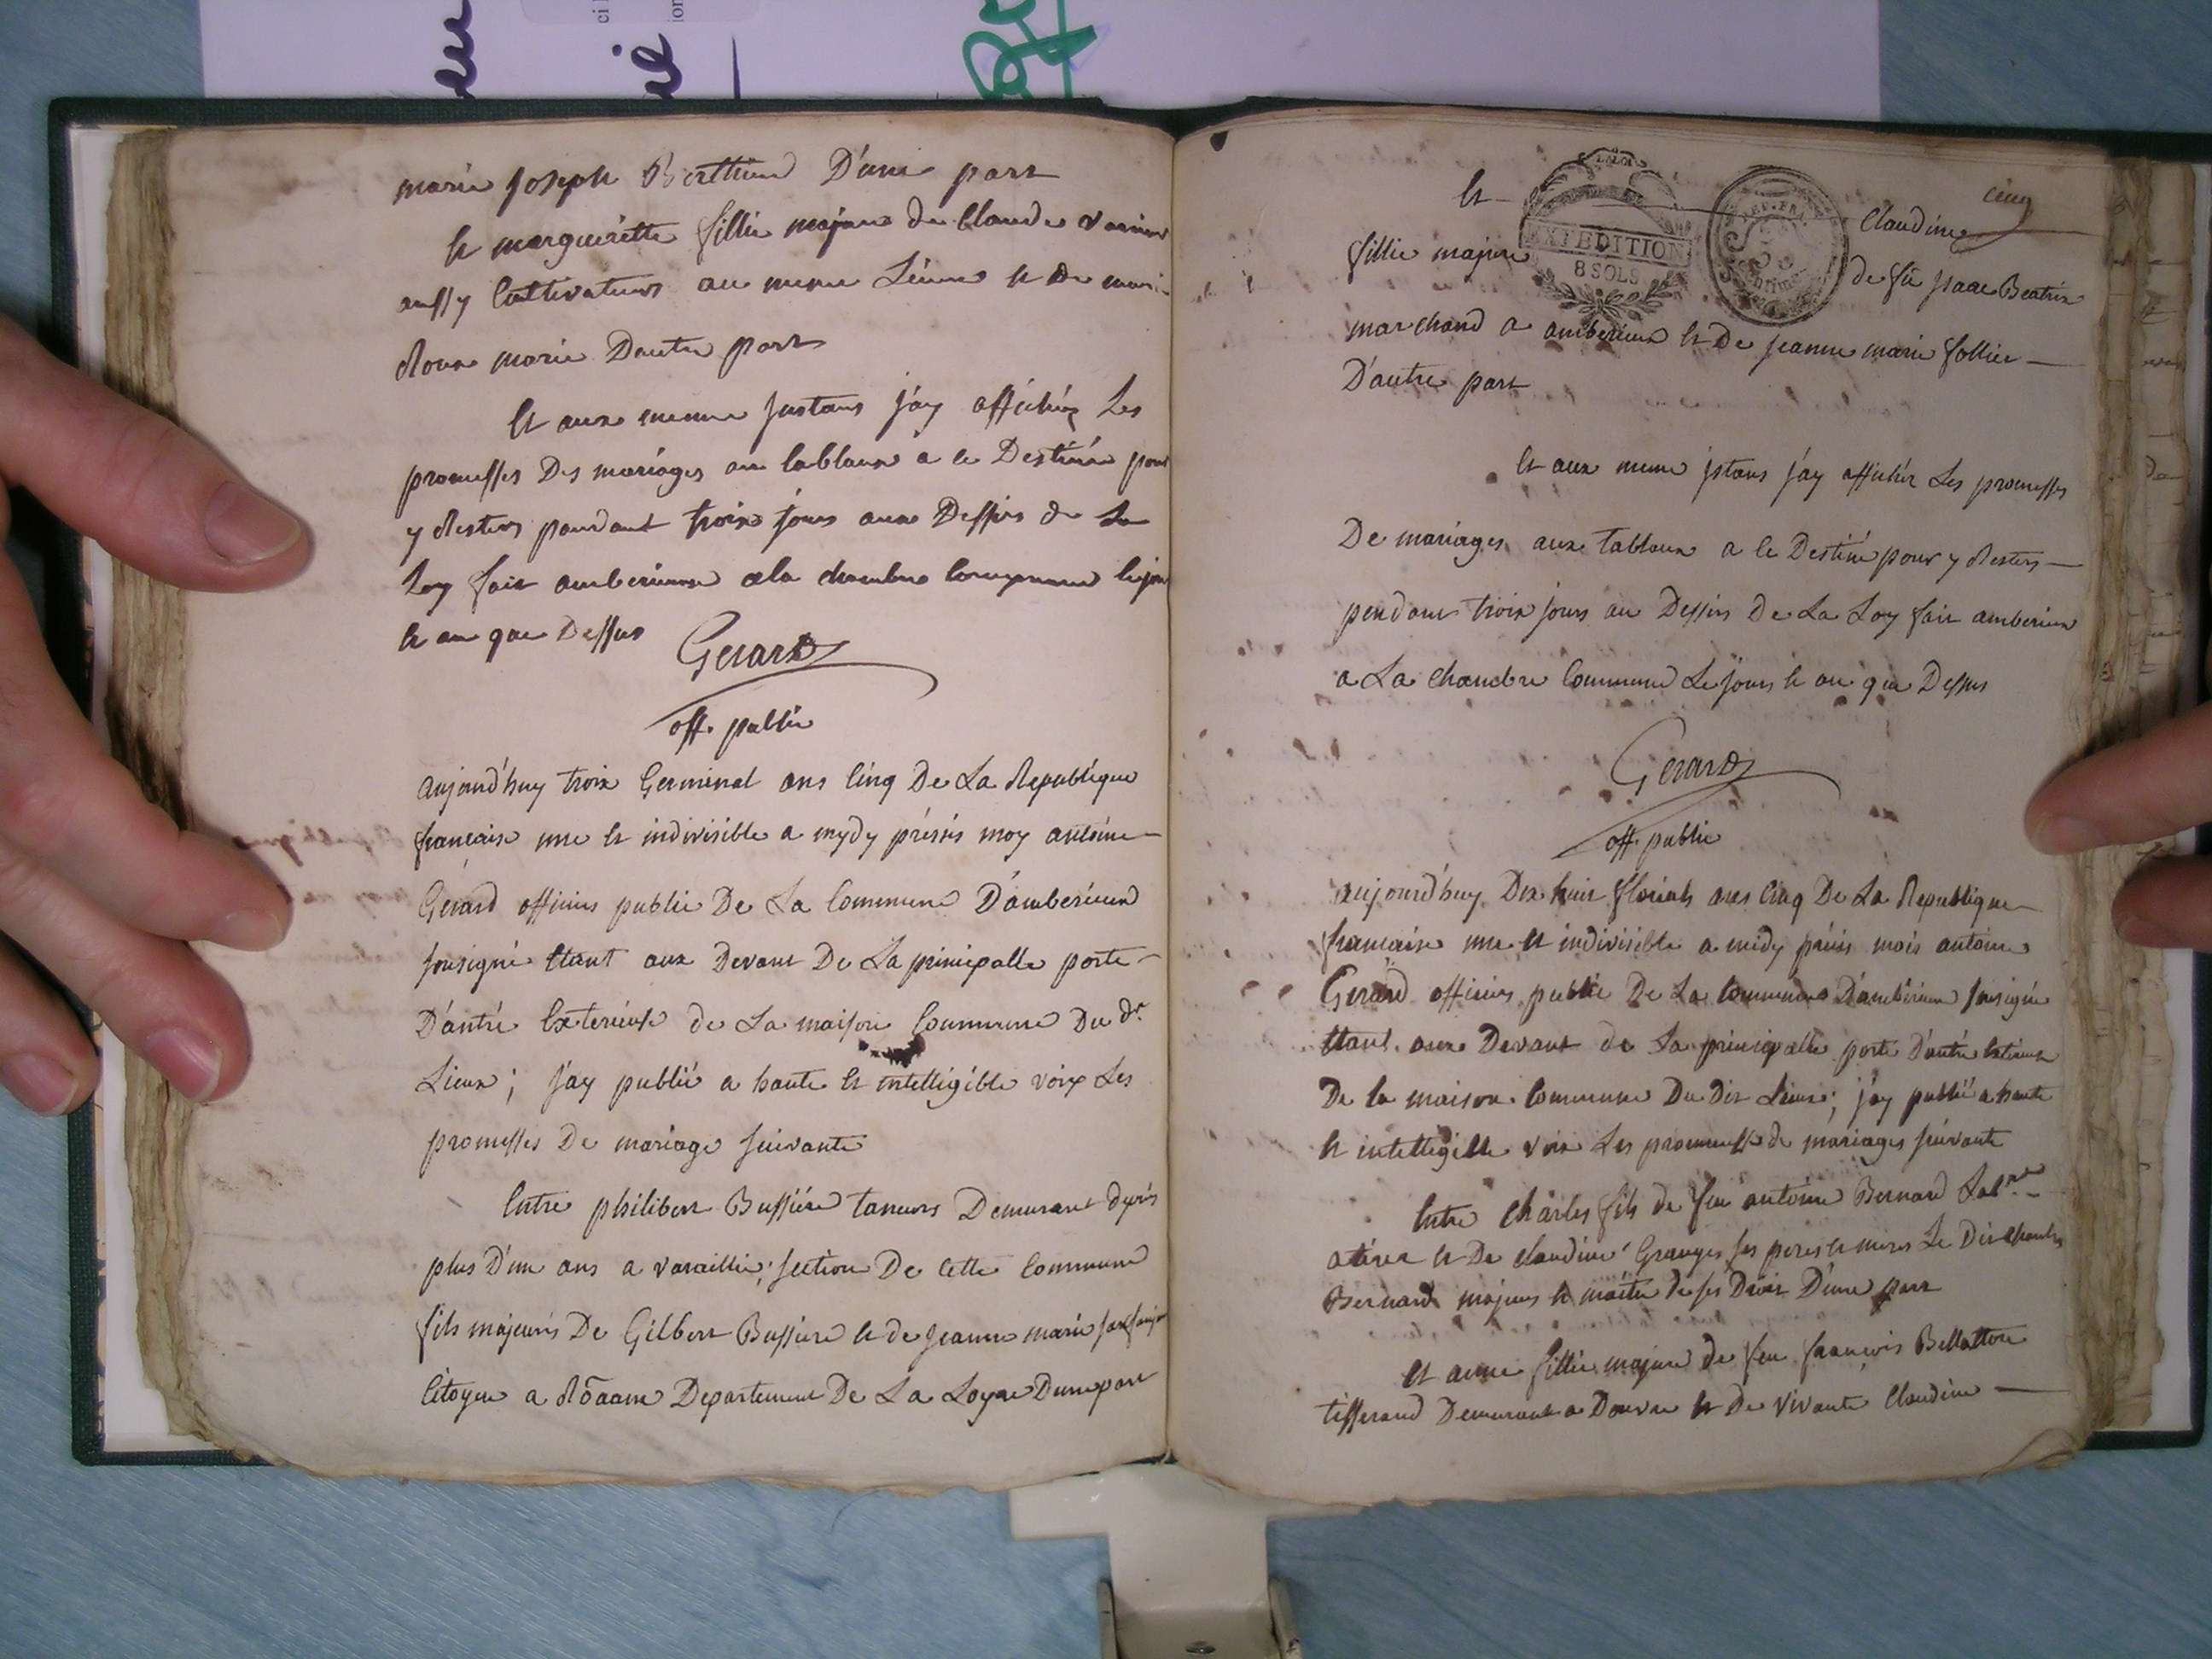 marie joseph Berthier D'une part
et marguerite fillie majeure de Claude
aussy Cultivateurs au meme Lieux et de marie
Roux marie Dautre part
Et aux meme justans j'ay affichéz Les
promesses Des mariages au tableaux a ce Destinée pour
y Rester pendant troix jours aux Dessirs de La
Loy fait amberieux a la chambre Commune le jour
et an que Dessus
Gerard
off. public
aujourd'huy troix Germinal ans Cinq De La Republique
française une et indivisible a mydy présis moy antoine
Gerard officier public De La Commune D'amberieux
sousigné Etant aux Devant De La principalle porte
D'antré Exterieuse de La maison Commune Du dt
Lieux ; j'ay publié a haute et intelligible voix Les
promesses De mariage suivante
Entre philibert Bussiere taneurs Demurant depuis
plus D'un ans a varaillie, section De cette Commune
fils majeurs De Gilbert Bussiere et de jeanne marie
Citoyen a Roanne Departement De La Loyre D'une part
cinq
LA LOI
EXPEDITION
8 SOLS
REP. FRA.
Et Claudine
fillie majeure de fu jsaac Beatrix
marchand a amberieux et De jeanne marie follier
D'autre part
Et aux meme jstans j'ay affichéz Les promesses
De mariages aux tableaux a ce Destiné pour y Rester
pendant troix jours au Dessirs De La Loy fait amberieux
a La chambre Commune Le jours et an que Dessus
Gerard
off. public
aujourd'huy Dix huit floréals ans Cinq De La Republique
francaise une et indivisible a midy présis mois antoine
Gerard officier public De La Commune D'amberieux sousigné
Etant aux Devant de La principalle porte D'antré
De la maison Commune Du dit Lieux ; j'ay publié a haute
et intelligible voix Les promesse de mariages suivante
Entre Charles fils de feu antoine Bernard
et De Claudine Granges ses peres et meres Le Dit Charles
Bernard majeurs et maitre de ses Droit D'une part
Et anne fillie majeure de feu francois Bellatton
tisserand Demurant a Douvre et De vivante Claudine